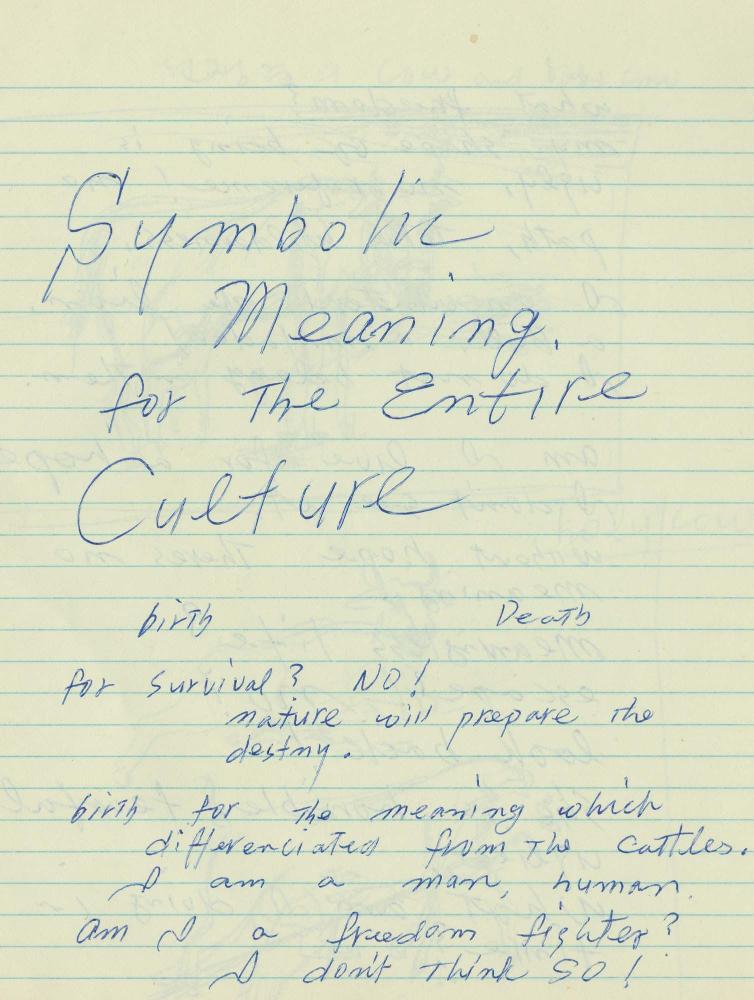 Symbolic
Meaning.
for The Entire
Culture
birth Death
for survival? NO!
nature will prepare the
destny.
birth for the meaning which
differenciated from the cattles.
I am a man, human.
am I a freedom fighter?
I don't Think SO!